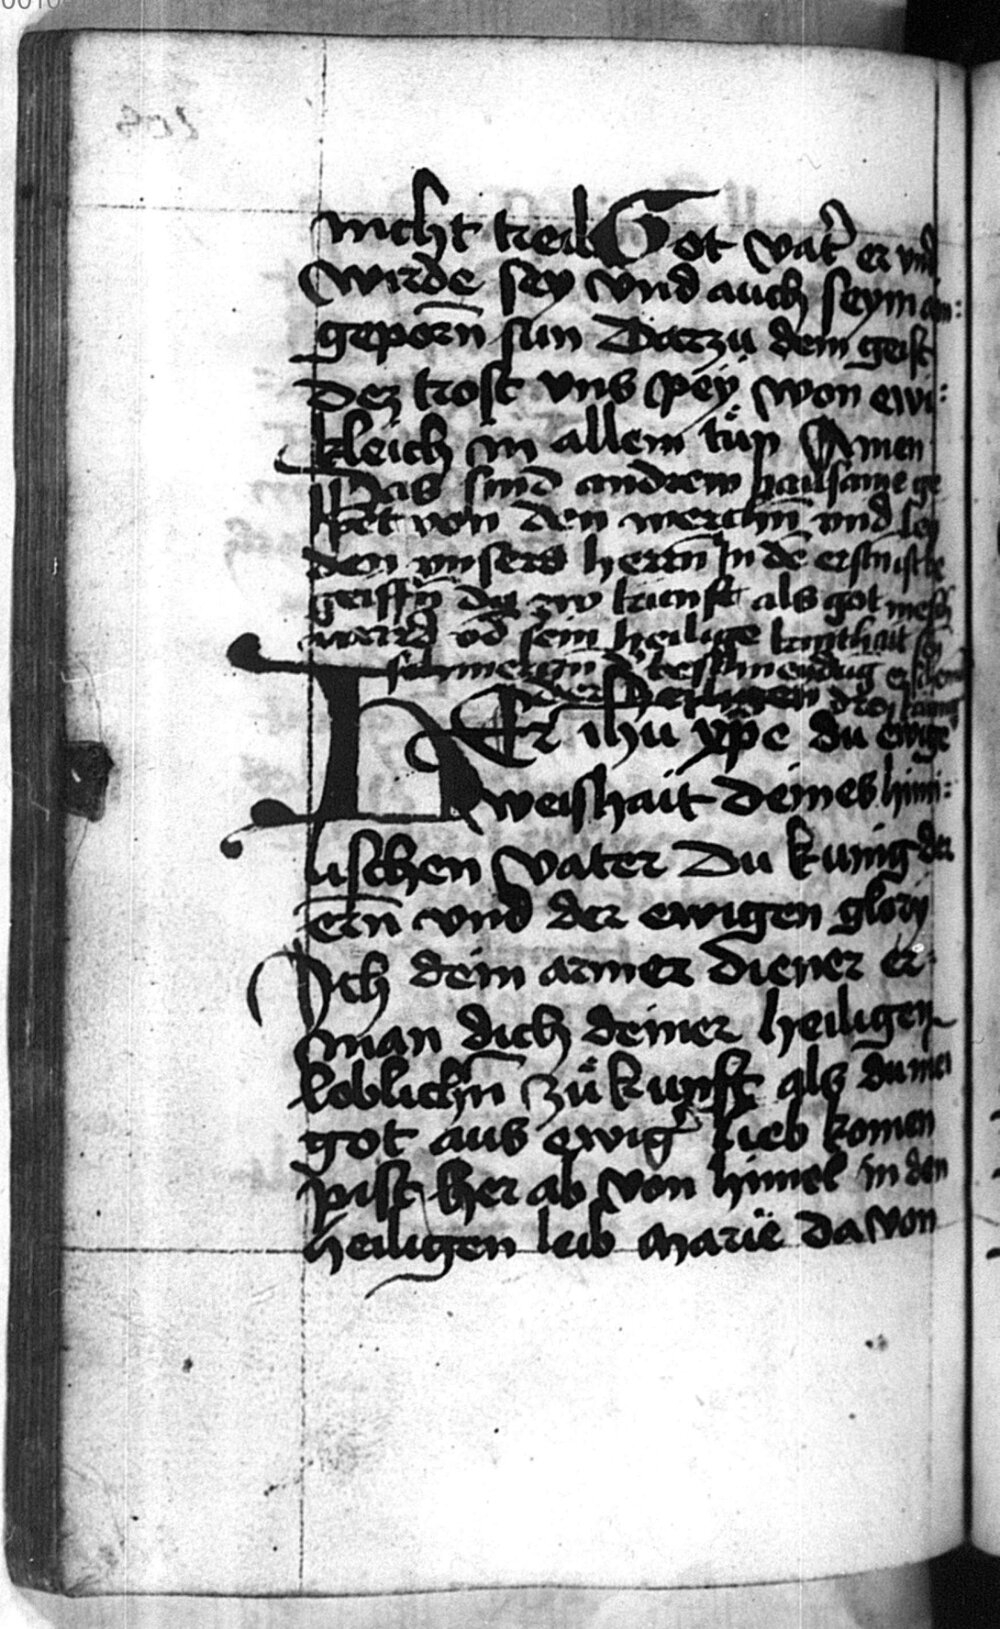 nicht treib Got vat͛ er vnd
wirde sey vnd auch seym ain:
geporn̄ sun Darzu dem geist
Dez trost vns pey won ewi:
kleich in allem tůn Amen
Das sind andrew hailsame ge
pet von den werchn̄ vnd ley
den vnsers herrn̄ In dē ersten ist be
griffn̄ die zw kunft als got mesch
ward vō sein heilige kinthait
der heiligen drei kunig
HEr ihu xp̄e du ewige
weishait deines himi:
lischen vater Du kunig der
ern̄ vnd der ewigen glorij
Ich dein armer diener er:
man dich deiner heiligen
loblichn̄ zůkunfft als du mei
got aus ewig͛ lieb komen
pist her ab von himel in den
heiligen leib Marië da von